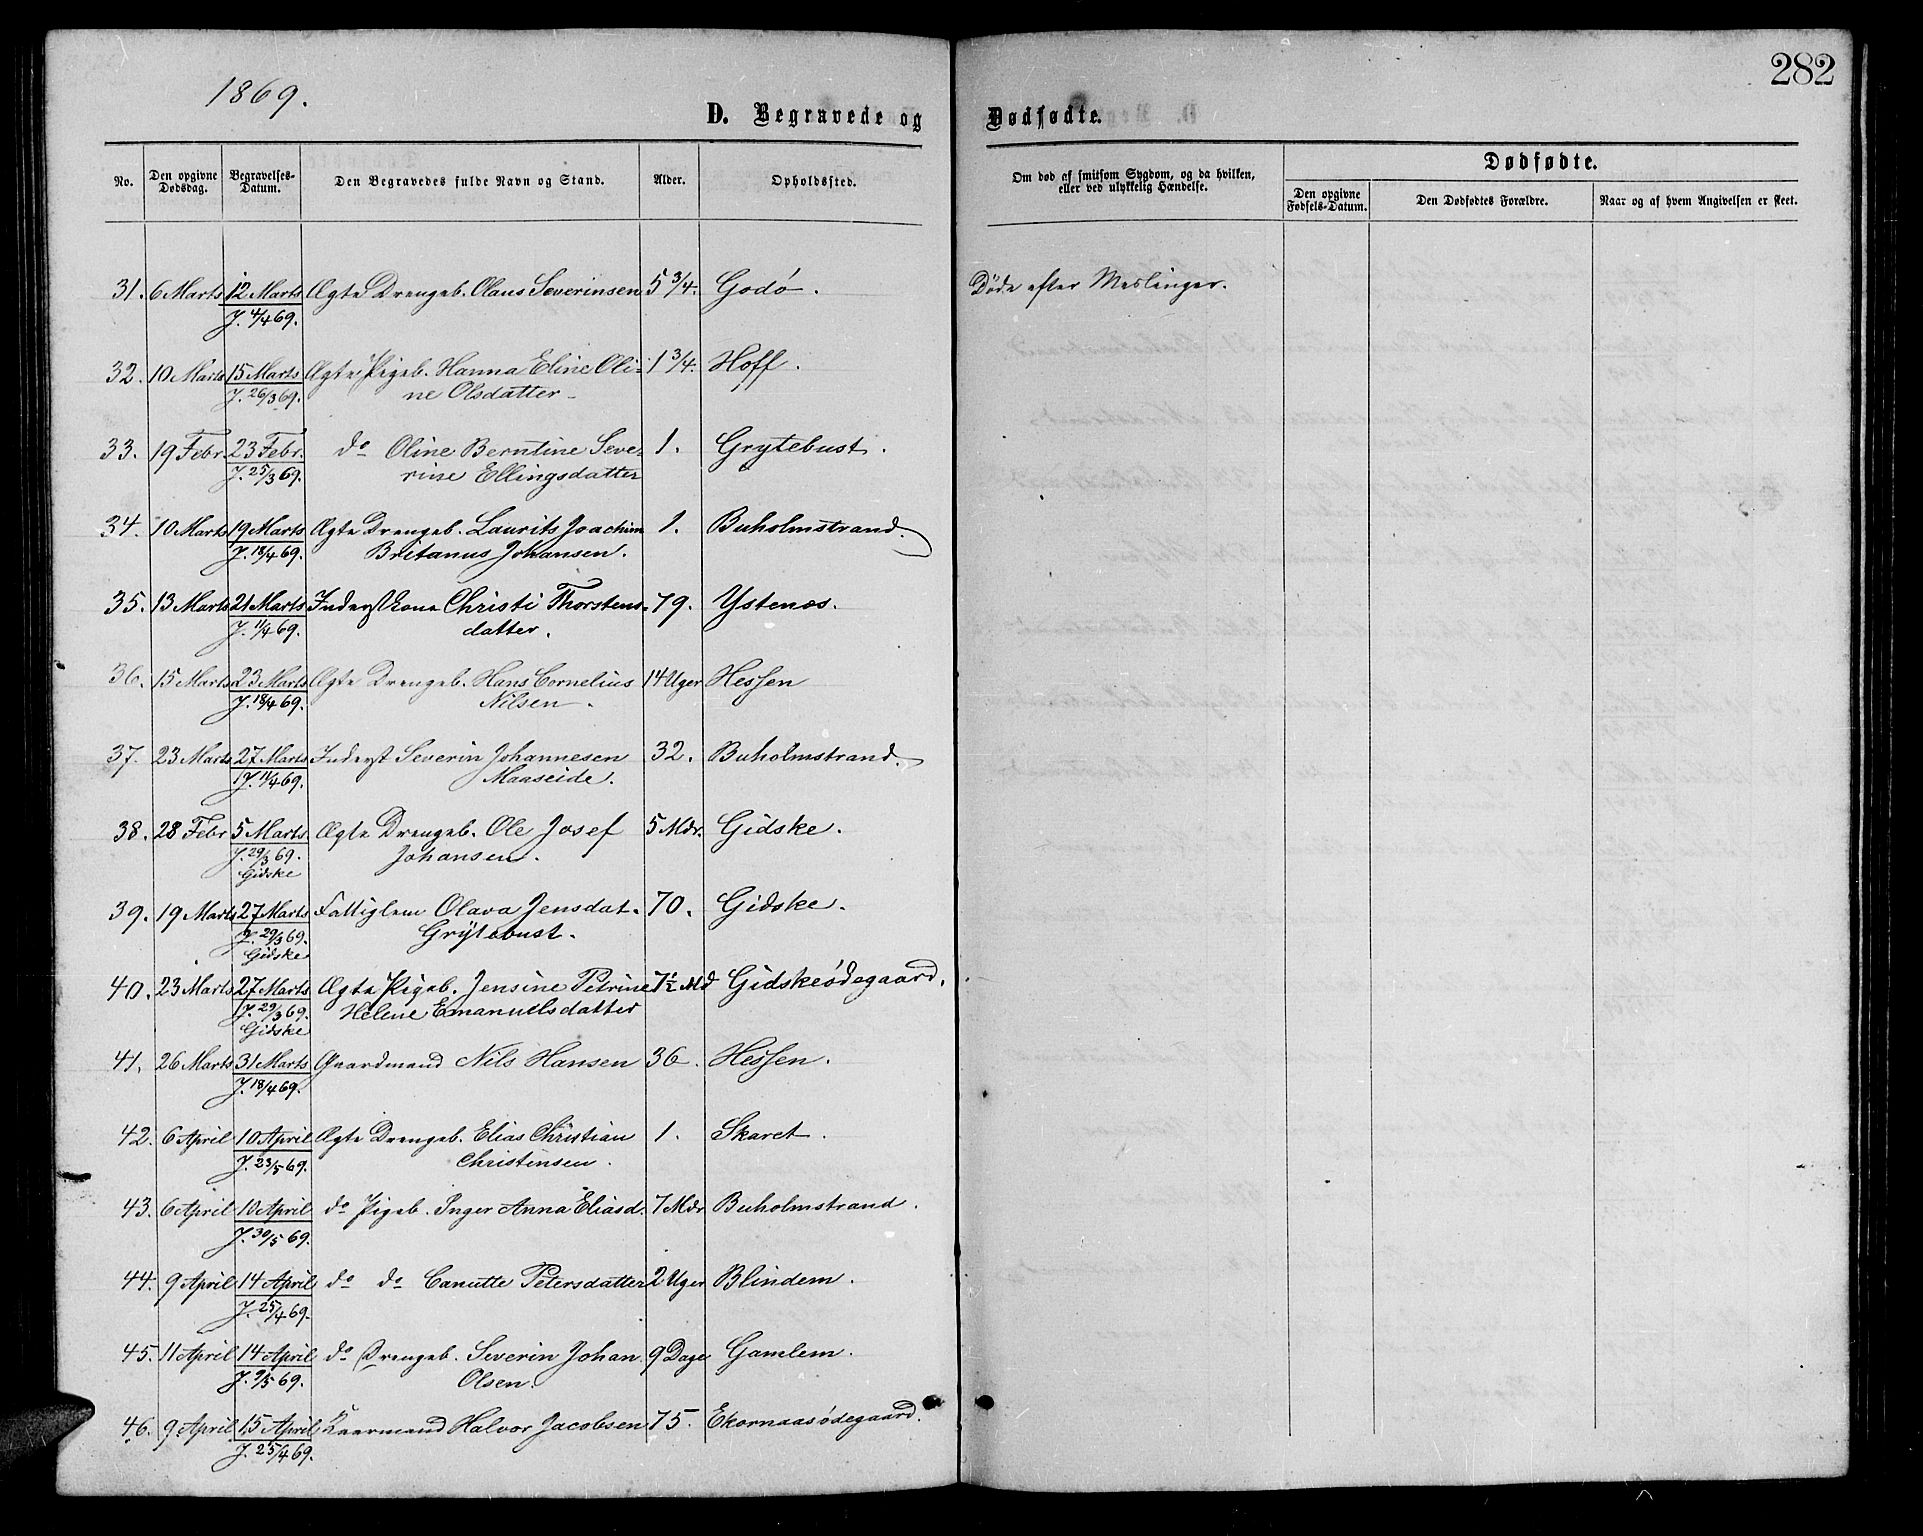 1869.
282
D. Begravede og Dødfødte.
No. Den opgivne Dødsdag. Begravelses-Datum. Den Begravedes fulde Navn og Stand. Alder. Opholdssted. Om død af smitsom Sygdom, og da hvilken, eller ved ulykkelig Hændelse. Dødfødte.
Den opgivne Fødsels-Datum. Den Dødfødtes Forældre. Naar og af hvem Angivelsen er skeet.
31. 6 Marts 12 Marts Ægte Drengeb. Olaus Severinsen 5 3/4. Godø. Døde efter Meslinger.
J. 4/4 69.
32. 10 Marts 15 Marts Ægte Pigeb. Hanna Eline Oli- 1 3/4. Hoff.
J. 26/3 69. ne Olsdatter
33. 19 Febr. 23 Febr. do Oline Berntine Seve- 1. Grytebust.
J. 25/3 69. rine Ellingsdatter
34. 10 Marts 19 Marts Ægte Drengeb. Laurits Joachim 1. Buholmstrand.
J. 18/4 69. Britanus Johansen.
35. 13 Marts 21 Marts Inderstkone Christi Thorstens- 79. Ystenæs.
J. 11/4 69. datter.
36. 15 Marts 23 Marts Ægte Drengeb. Hans Cornelius 14 Uger Hessen
J. 18/4 69. Nilsen.
37. 23 Marts 27 Marts Inderst Severin Johannesen 32. Buholmstrand.
J. 11/4 69. Maaseide.
38. 28 Febr 5 Marts Ægte Drengeb. Ole Josef 5 Mdr. Gidske.
J. 29/3 69. Johansen.
Gidske
39. 19 Marts 27 Marts Fattiglem Olava Jensdat. 70. Gidske.
J. 29/3 69. Grytebust.
Gidske
40. 23 Marts 27 Marts Ægte Pigeb. Jensine Petrine 7½ Md Gidskeødegaard.
J. 29/3 69. Helene Emanuelsdatter
Gidske
41. 26 Marts 31 Marts Gaardmand Nils Hansen 36. Hessen.
J. 18/4 69.
42. 6 April 10 April Ægte Drengeb. Elias Christian 1. Skaret.
J. 23/5 69. Christensen.
43. 6 April 10 April do Pigeb. Inger Anna Eliasd. 7 Mdr Buholmstrand.
J. 30/5 69.
44. 9 April 14 April do do Canutte Petersdatter 2 Uger Blindem.
J. 25/4 69.
45. 11 April 14 April do Drengeb. Severin Johan 9 Dage Gamlem.
J. 9/5 69. Olsen.
46. 9 April 15 April Kaarmand Halvor Jacobsen 75. Ekornaasødegaard.
J. 25/4 69.